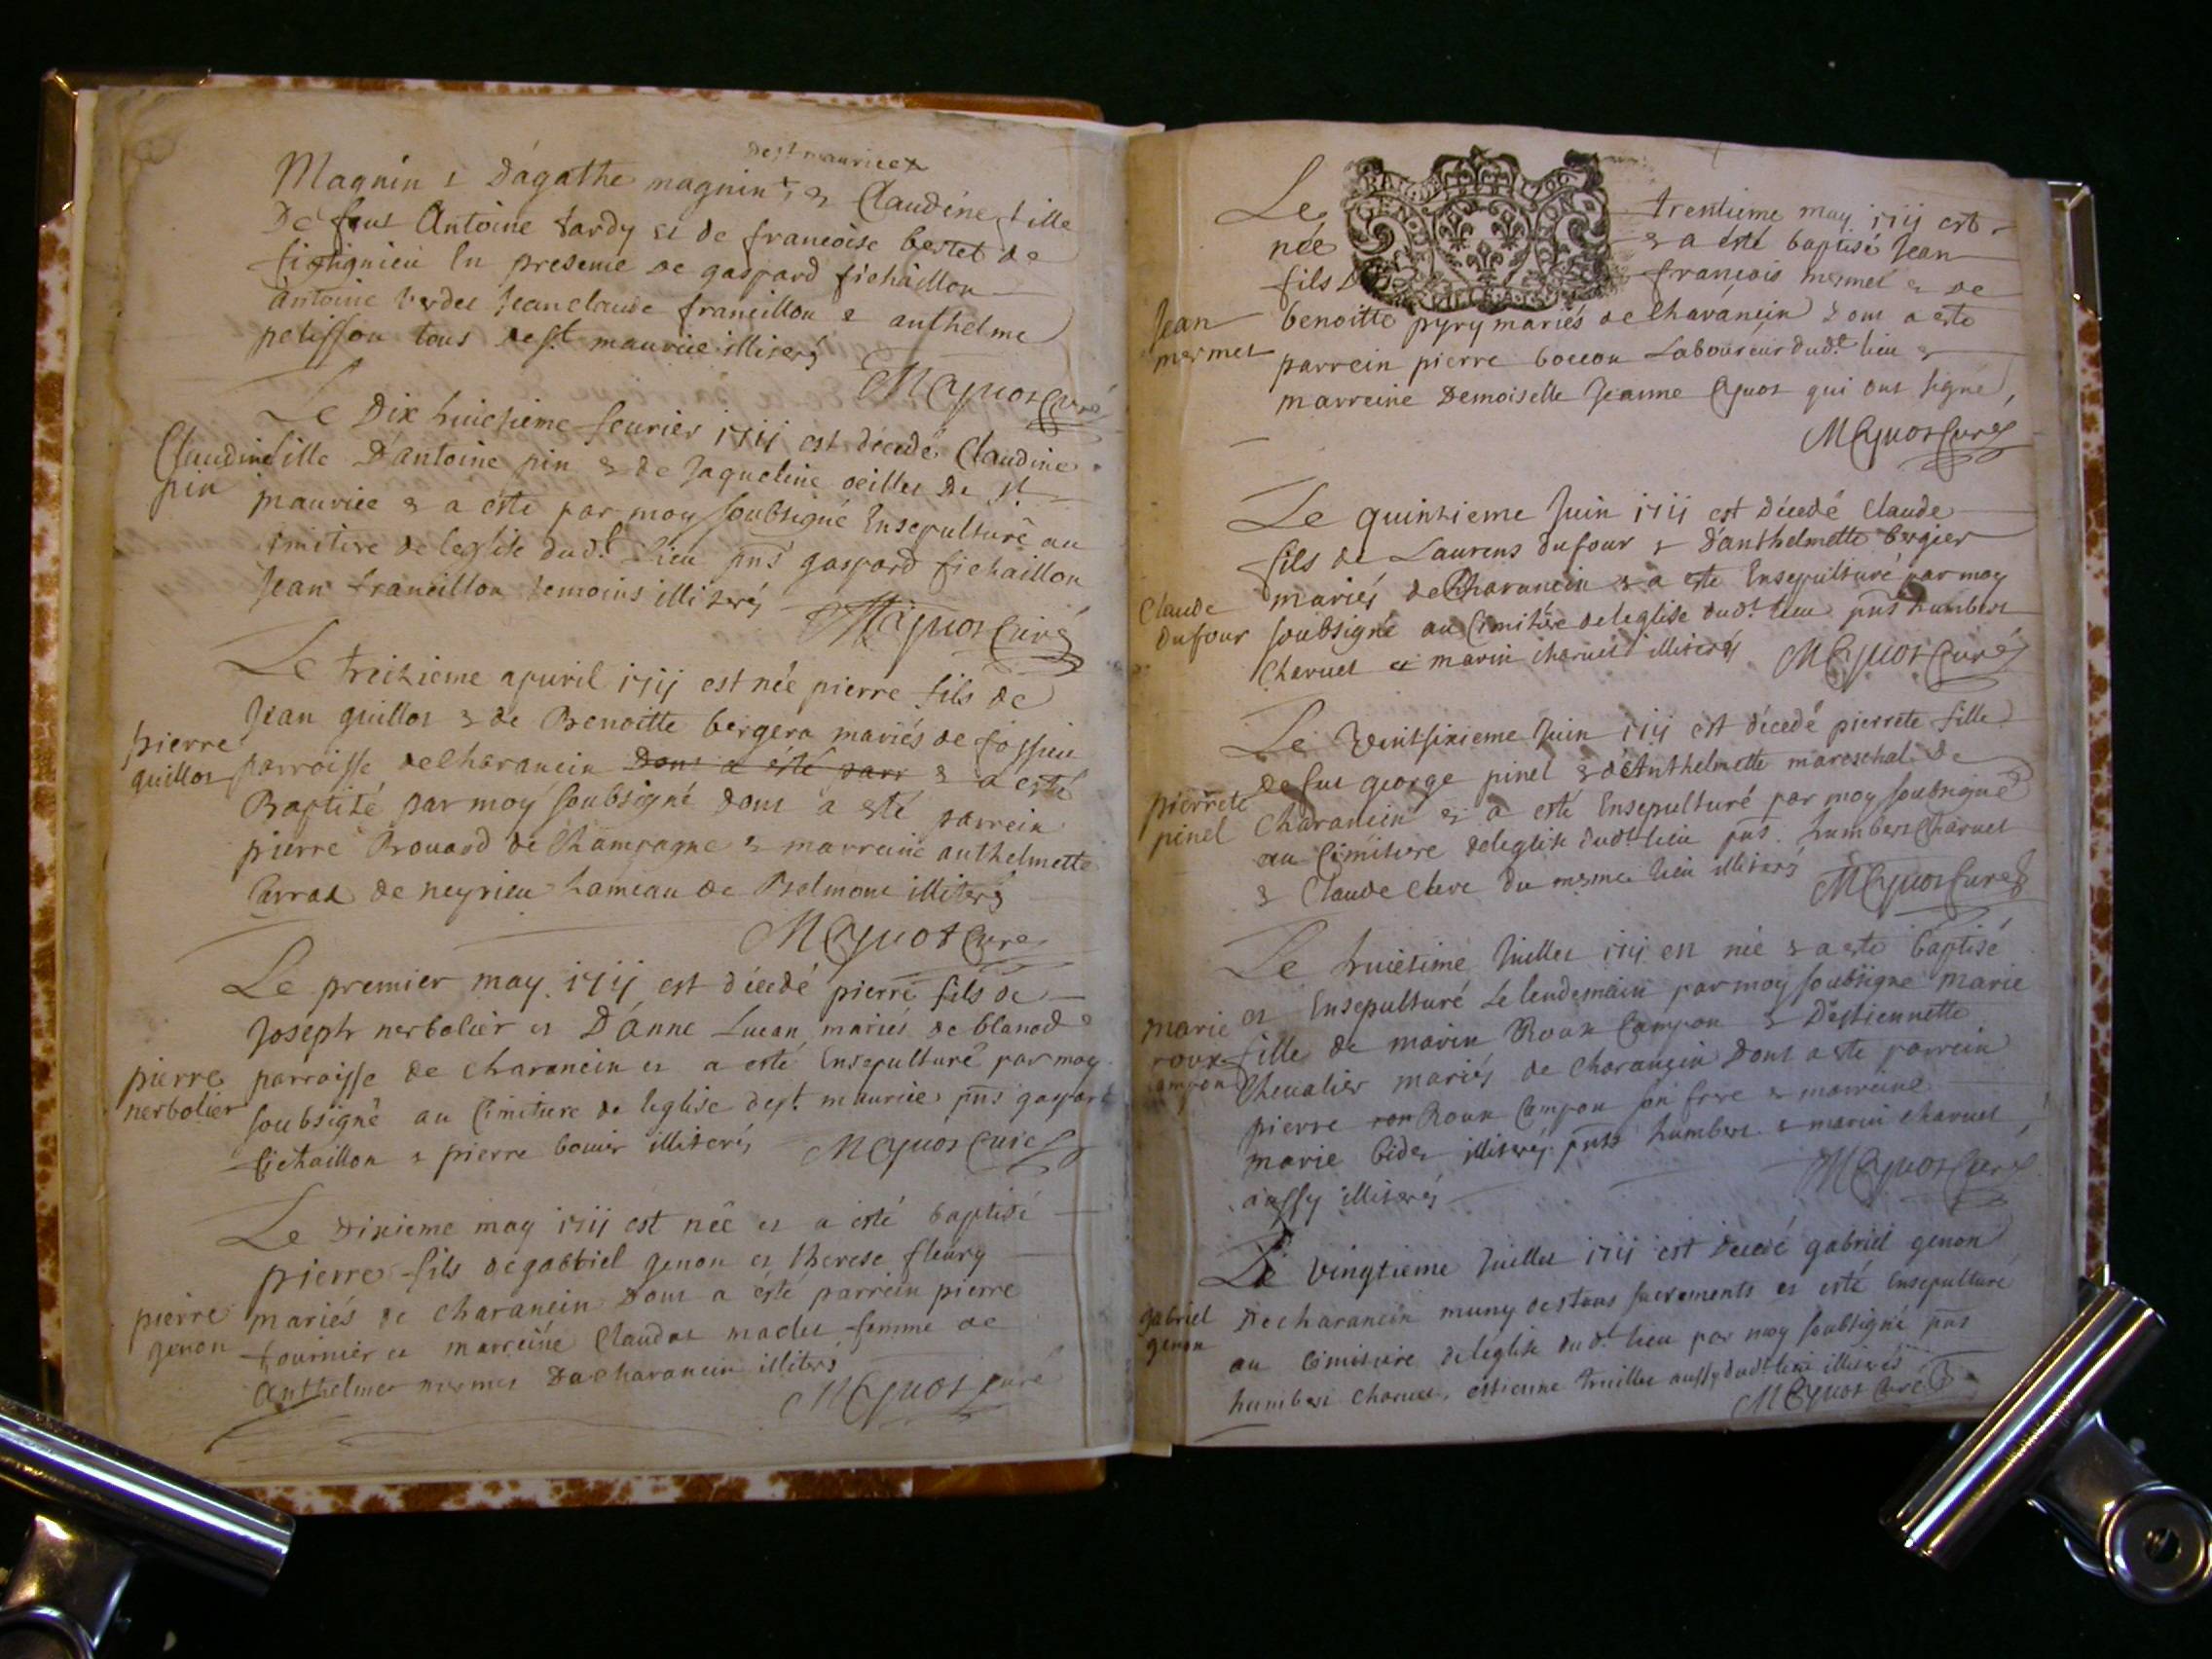 de st maurice x
Magnin & D'agathe magnin x & Claudine fille
De feus Antoine tardy et de francoise bertet de
En presence de gaspard fichaillon
Antoine verdet Jean claude francillon & anthelme
pelisson tous de st maurice illiterés
MCyvot Curé
Le Dix huictieme feurier 1711 est décedé Claudine
Claudine pin
fille D'antoine pin & de Jaqueline oeillet De st
maurice & a este par moy soubsigné Ensepulturé au
cimitiere de leglise dudt Lieu pnts gaspard fichaillon
Jean francillon temoins illiterés
MCyvot Curé
Le treizieme apuril 1711 est née pierre fils de
Jean guillot & de Benoitte bergera mariés de fossieu
pierre guillot
parroisse de Charancin Dont a été parr & a esté
Baptisé par moy soubsigné dont a esté parrein
pierre Brouard de Champagne & marreine anthelmette
Carraz de neyrieu hameau de Belmont illiterés
MCyvot Curé
Le premier may 1711 est décedé pierre fils de
Joseph nerbolier et D'anne Lucan mariés de blanod
pierre nerbolier
parroisse de charancin et a esté Ensepulturé par moy
soubsigné au Cimitiere de leglise de st maurice pnts gaspart
fichaillon & pierre bouvier illiterés MCyvot Curé
Le Dixieme may 1711 est née et a esté baptisé
pierre fils de gabriel genon et therese fleury
pierre genon
mariés de charancin Dont a été parrein pierre
fournier et marreine Claudat madet femme de
Anthelme mermet De charancin illiterés
MCyvot Curé
GEN
Le trentieme may 1711 est
née & a esté baptisé Jean
fils De francois mermet & de
Jean mermet
benoitte pyry mariés de Charancin Dont a esté
parrein pierre boccon Laboureur dudt lieu &
marreine Demoiselle Jeanne Cyvot qui ont signé,
MCyvot Curé
Le quinzieme Juin 1711 est Décedé Claude
fils de Laurens dufour & d'anthelmette bergier
Claude Dufour
mariés de Charancin & a este Ensepulturé par moy
soubsigné au Cimitiere de leglise dudt lieu pnts humbert
Charvet et marin charvet illiterés MCyvot Curé
Le vintsixieme Juin 1711 est décedé pierrete fille
pierrete pinel
de feu george pinel & d'Anthelmette mareschal De
Charancin & a esté Ensepulturé par moy soubsigné
au Cimitiere de leglise dudt lieu pnts humbert Charvet
& Claude Cleve du mesme lieu illiterés MCyvot Curé
Le huictime Juillet 1711 est née & a este baptisé
et Ensepulturé Le lendemain par moy soubsigné marie
marie roux campon
fille de marin Roux Campon & D'estiennette
Chevalier mariés de Charancin Dont a este parrein
pierre Roux Campon son frere & marreine
marie bider illiterés pnts humbert & marin charvet
aussy illiterés
MCyvot Curé
Le vingtieme Juillet 1711 est Décedé gabriel genon
gabriel genon
De charancin muny des tous sacrements et esté Ensepulturé
au Cimitiere de léglise dudt lieu par moy soubsigné pnts
humbert charvet, estienne truillet aussy dudt lieu illiterés
MCyvot Curé